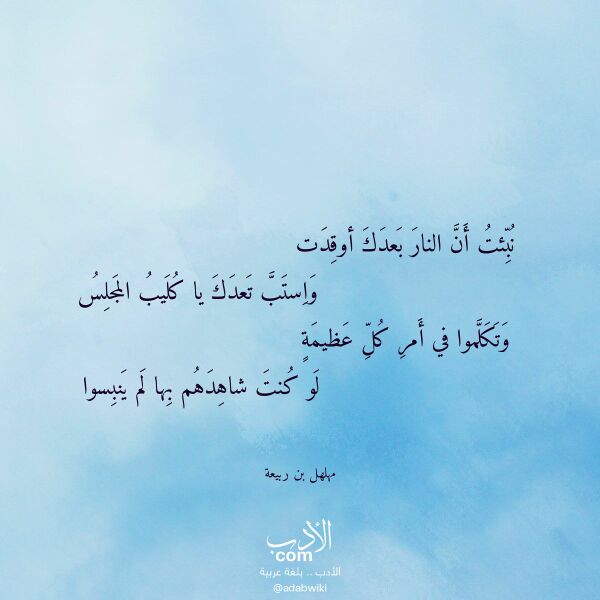 نُبِّئتُ أَنَّ النارَ بَعدَكَ أوقِدَت
وَاِستَبَّ تَعدَكَ يا كُلَيبُ المَجلِسُ
وَتَكَلَّموا في أَمرِ كُلِّ عَظيمَةٍ
لَو كُنتَ شاهِدَهُم بِها لَم يَنبِسوا
مهلهل بن ربيعة
الأدب
com
الأدب .. بلغة عربية
@adabwiki